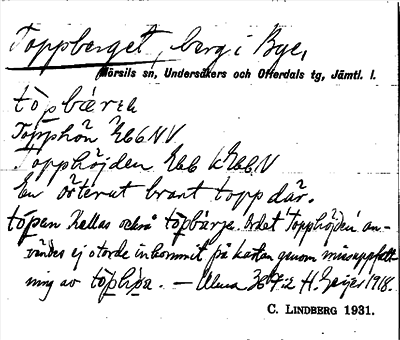 Toppberget, berg i Bye,
Mörsils sn, Undersåkers och Offerdals tg, Jämtl. l.
töpbærε
Topphön GEGNV
Topphöjden GEG
En österut brant topp där.
töpen kallas också töpbärje. Ordet 'Topphöjden' an-
vändes ej o torde inkommit på kartan genom missuppfatt-
ning av töphöa. — Ulma 36 H. Geijer 1918.
C. LINDBERG 1931.